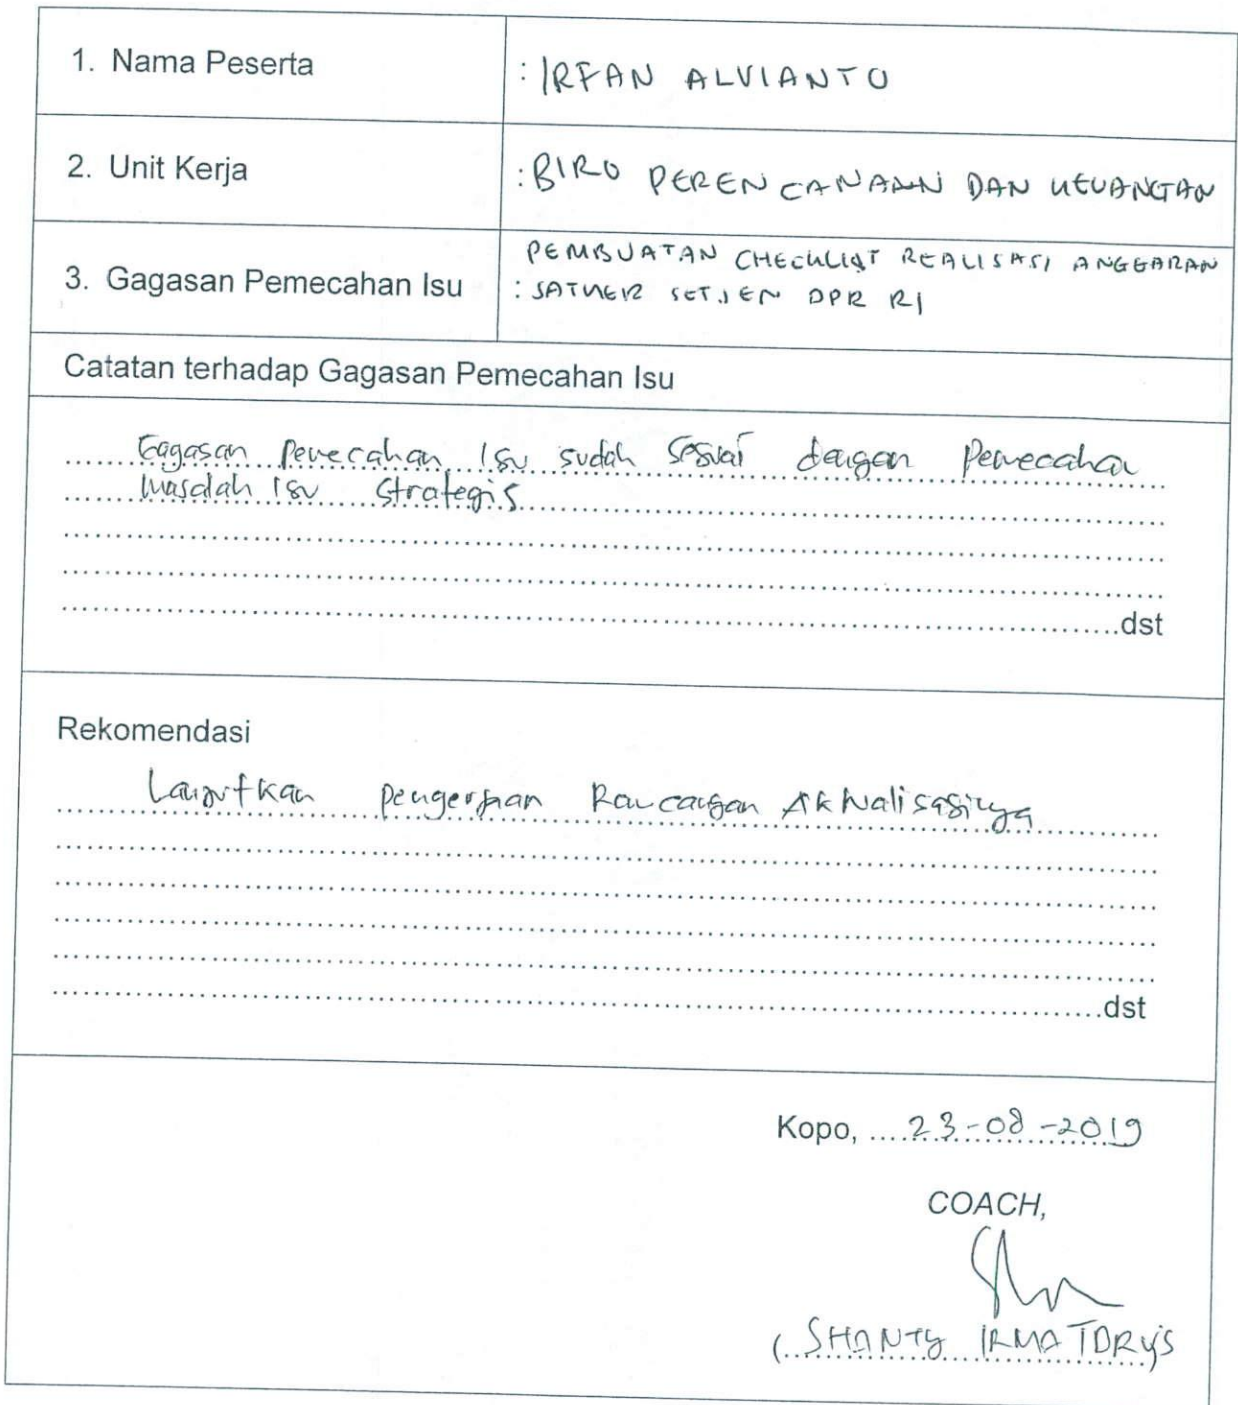 1. Nama Peserta : IRFAN ALVIANTO
2. Unit Kerja : BIRO PERENCANAAN DAN KEUANGAN
PEMBUATAN CHECKLIST REALISASI ANGGARAN
3. Gagasan Pemecahan Isu : SATKER SETJEN DPR RI
Catatan terhadap Gagasan Pemecahan Isu
Gagasan Pemecahan Isu sudah sesuai dengan Pemecahan
Masalah Isu Strategis
dst
Rekomendasi
Lanjutkan pengerjaan Rancangan Aktualisasinya
dst
Kopo, 23-08-2019
COACH,
(SHANTY IRMA